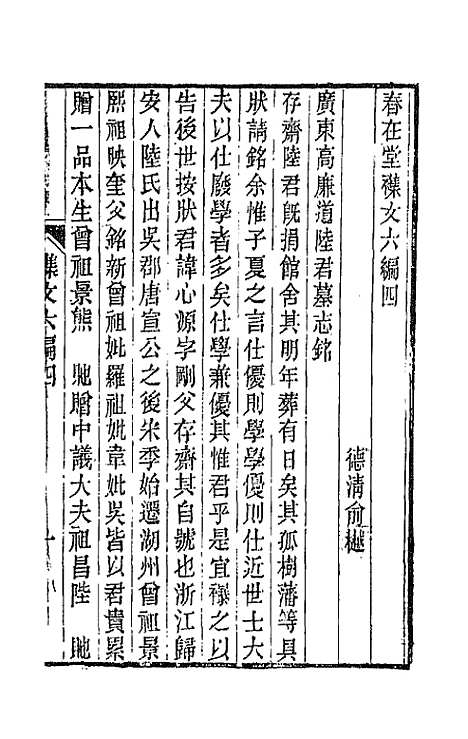 春在堂襍文六編四
德淸俞樾
廣東高廉道陸君墓志銘
存齋陸君旣捐館舍其明年葬有日矣其孤樹藩等具
狀請銘余惟子夏之言仕優則學學優則仕近世士大
夫以仕廢學者多矣仕學兼優其惟君乎是宜襮之以
告後世按狀君諱心源字剛父存齋其自號也浙江歸
安人陸氏出吳郡唐宣公之後宋季始遷湖州曾祖景
熙祖映奎父銘新曾祖妣羅祖妣韋妣吳皆以君貴累
贈一品本生曾祖景熊 貤贈中議大夫祖昌陸 貤
襍文六編四
一